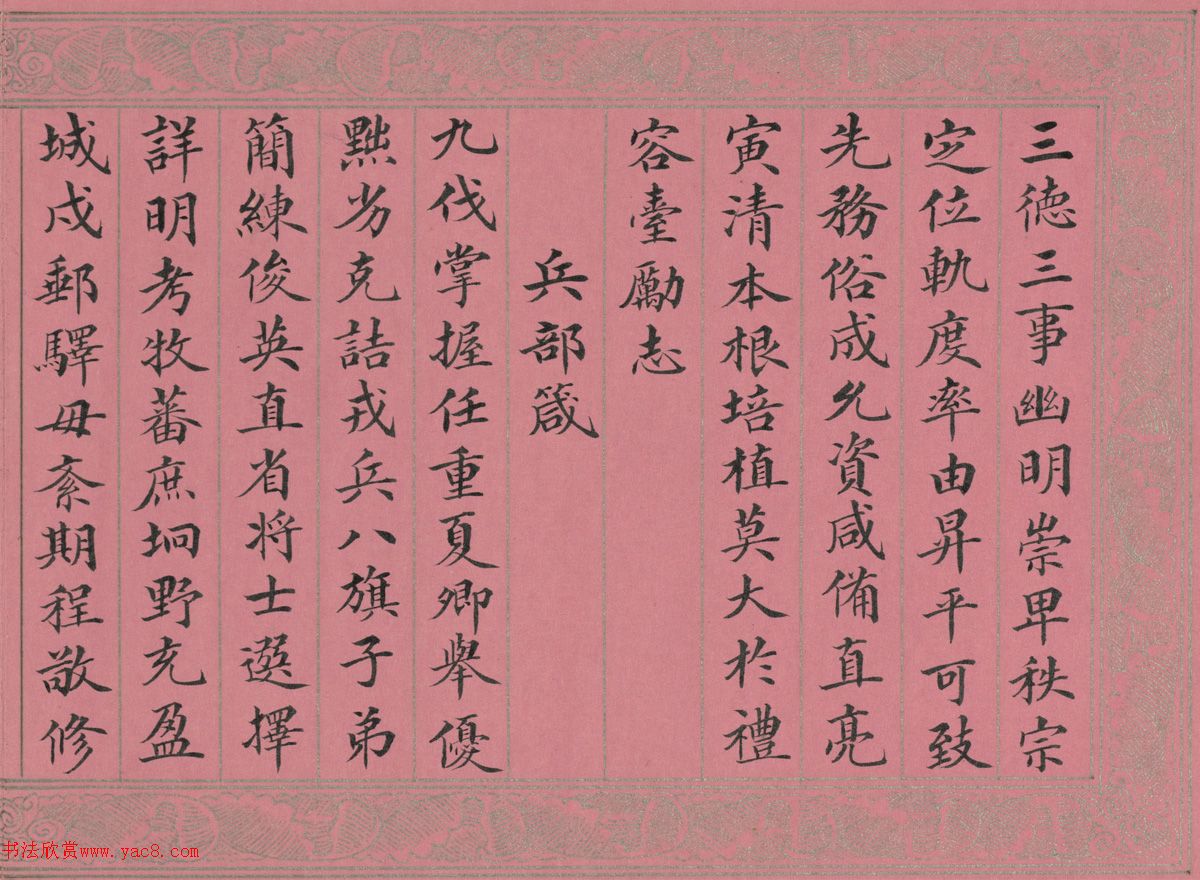 三德三事幽明崇卑秩宗
定位軌度率由昇平可致
先務俗成允資咸備直亮
寅清本根培植莫大於禮
容臺勵志
兵部箴
九伐掌握任重夏卿舉優
黜劣克詰戎兵八旗子弟
簡練俊英直省将士選擇
詳明考牧蕃庶坰野充盈
城戍郵驛毋紊期程敬修
书法欣赏www.yac8.com